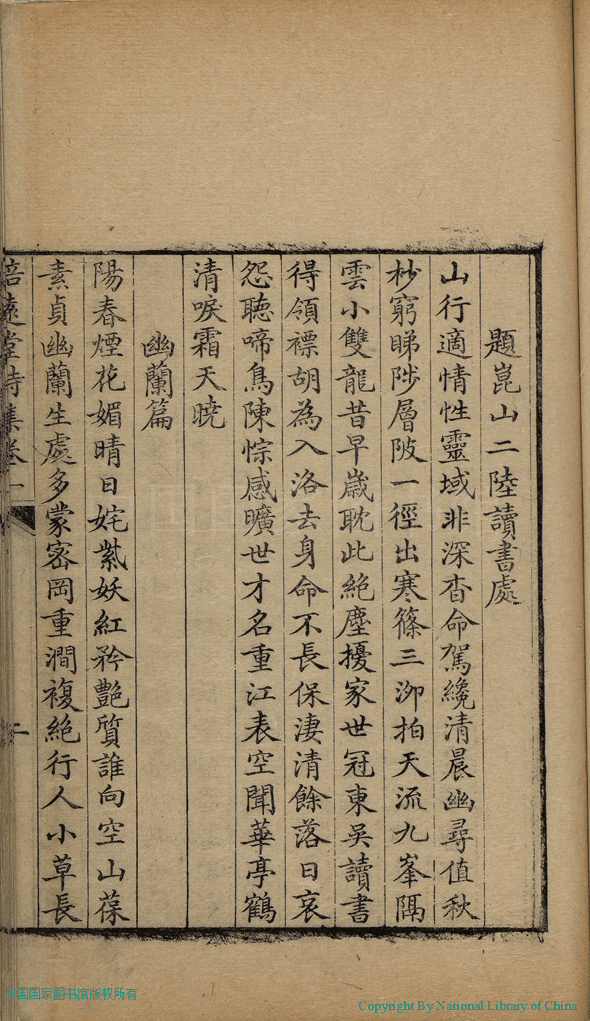 題崑山二陸讀書處
山行適情性靈域非深杳命駕纔清晨幽尋值秋
杪窮睇陟層陂一徑出寒篠三泖拍天流九峯隅
雲小雙龍昔早歲耽此絕塵擾家世冠東吳讀書
得領褾胡為入洛去身命不長保淒清餘落日哀
怨聽啼鳥陳悰感曠世才名重江表空聞華亭鶴
清唳霜天曉
幽蘭篇
陽春煙花媚晴日姹紫妖紅矜艷質誰向空山葆
素貞幽蘭生處多蒙密岡重澗複絕行人小草長
培遠堂詩集卷一
二
中国国家图书馆版权所有
Copyright By National Library of China